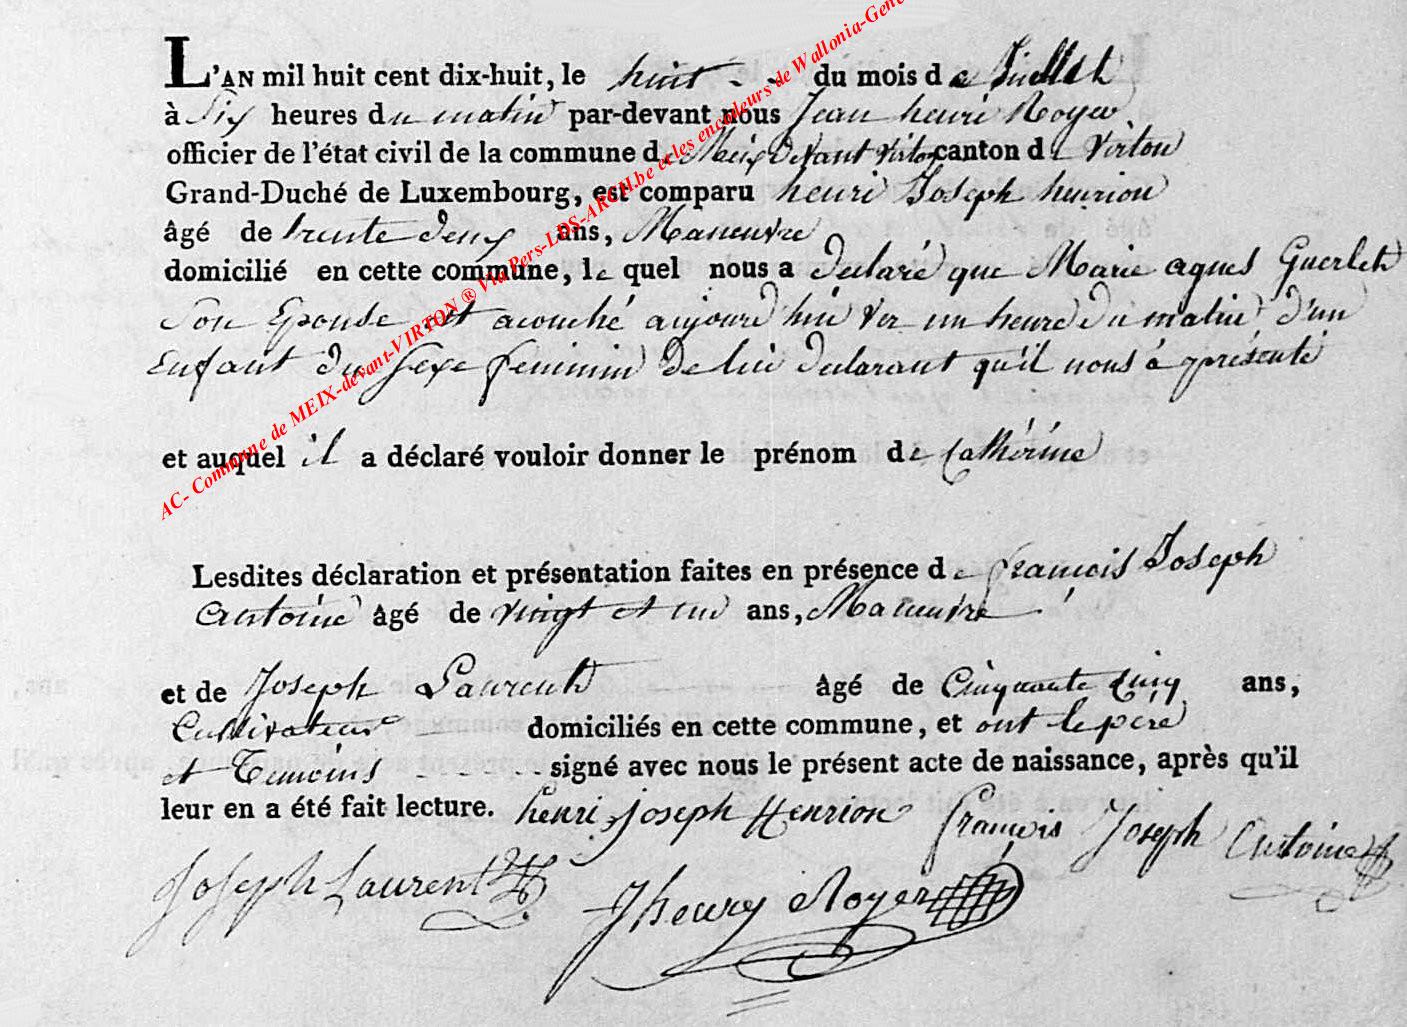 L'AN mil huit cent dix-huit, le huit - - du mois de Juillet
à Six heures du matin par-devant nous Jean henri Royer
officier de l'état civil de la commune de Meix Devant Virton canton de Virton
Grand-Duché de Luxembourg, est comparu henri Joseph henrion
âgé de trente deux ans, Maneuvre
domicilié en cette commune, le quel nous a declaré que Marie agnes Guerlet
Son Epouse est acouché aujourd'hui ver un heure du matin d'un
Enfant du Sexe feminin de lui declarant qu'il nous à présenté
et auquel il a déclaré vouloir donner le prénom de Cathérine
Lesdites déclaration et présentation faites en présence de françois Joseph
Antoine âgé de vingt et un ans, Maneuvre
et de Joseph Laurent âgé de Cinquante Cinq ans,
Cultivateur domiciliés en cette commune, et ont le père
et Temoins - - - - - signé avec nous le présent acte de naissance, après qu'il
leur en a été fait lecture. henri joseph Henrion françois Joseph Antoine
Joseph Laurent Jhenry Royer
AC- Commune de MEIX-devant-VIRTON ® Via Pers-LDS-ARCH.be et les encodeurs de Wallonia-Gene